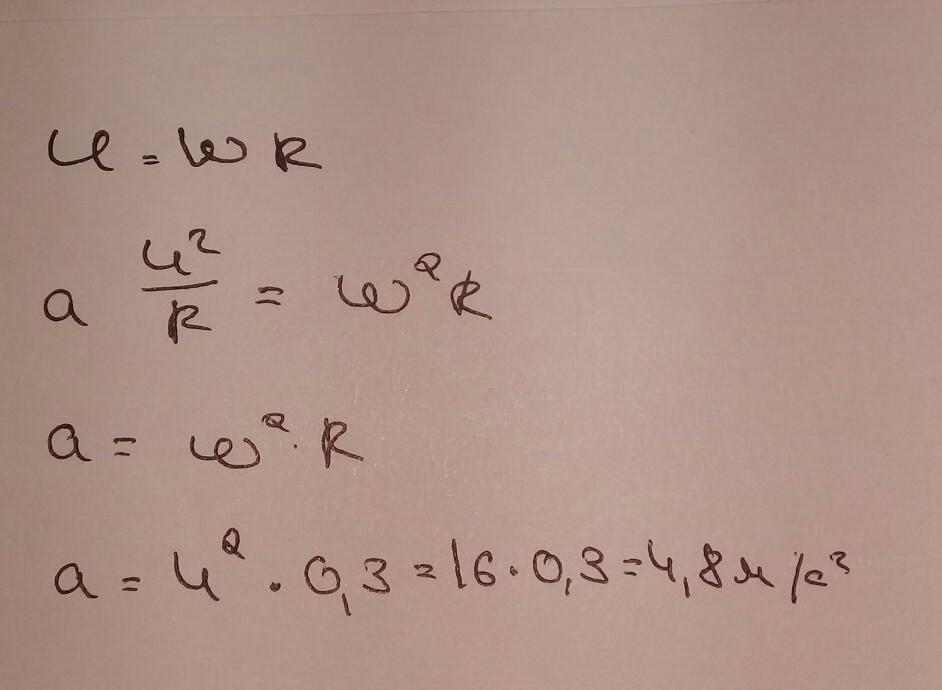 u = ωR
a u²/R = ω²R
a = ω² · R
a = 4² · 0,3 = 16 · 0,3 = 4,8 м/с²